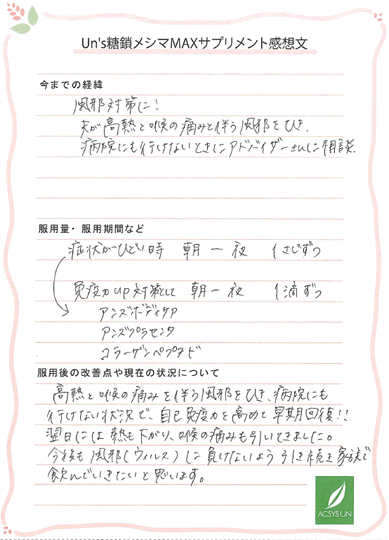 Un's糖鎖メシマMAXサプリメント感想文
今までの経緯
風邪対策に!
夫が高熱と喉の痛みを伴う風邪をひき、
病院にも行けないときにアドバイザーさんに相談。
服用量・服用期間など
症状がひどい時 朝一夜 1さじずつ
免疫力up対策として 朝一夜 1滴ずつ
アンズボディケア
アンズプラセンタ
コラーゲンペプタド
服用後の改善点や現在の状況について
高熱と喉の痛みを伴う風邪をひき、病院にも
行けない状況で、自己免疫力を高めて早期回復!!
翌日には熱も下がり、喉の痛みも引いてきました。
今後も風邪(ウィルス)に負けないよう引き続き家族で
飲んでいきたいと思います。
ACSYS UN